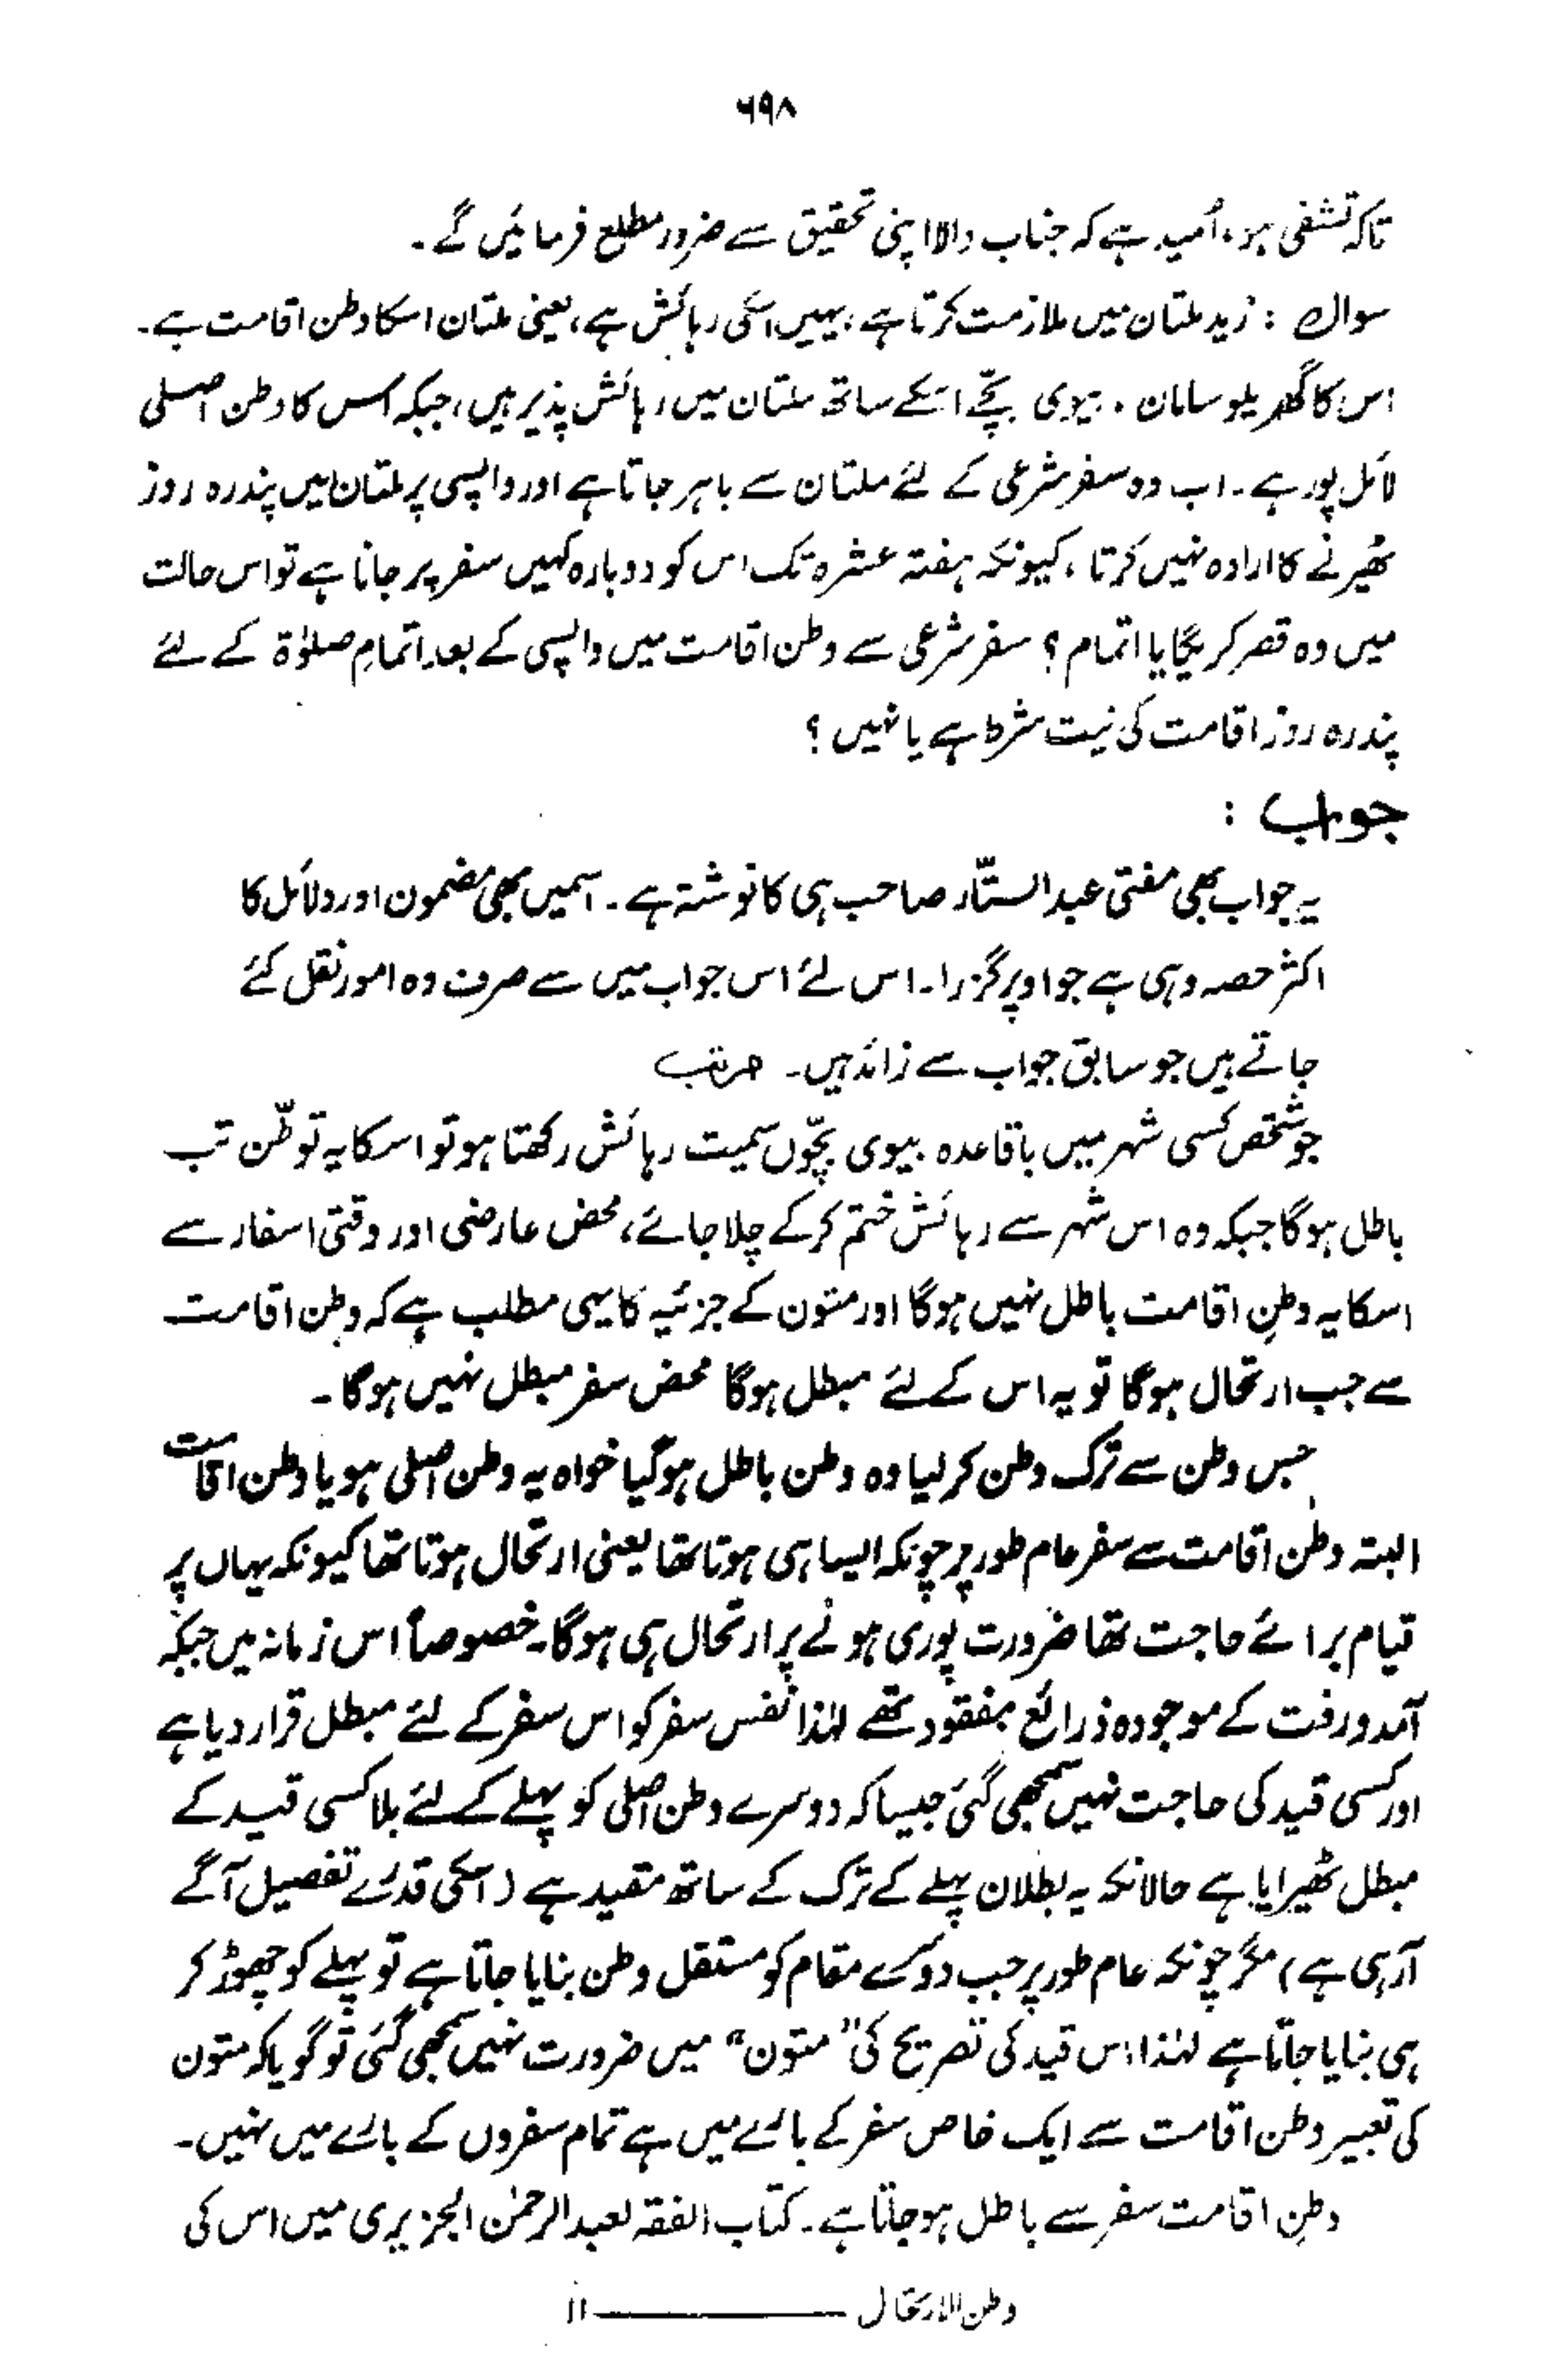 ۶۹۸
تاکہ تشفی ہو، اُمید ہے کہ جناب والا اپنی تحقیق سے ضرور مطلع فرمائیں گے۔
سوال : زید ملتان میں ملازمت کرتا ہے، یہیں اسکی رہائش ہے، یعنی ملتان اسکا وطن اقامت ہے۔
اس کا گھریلو سامان، بیوی بچّے اسکے ساتھ ملتان میں رہائش پذیر ہیں، جبکہ اس کا وطن اصلی
لائل پور ہے۔ اب وہ سفر شرعی کے لئے ملتان سے باہر جاتا ہے اور واپسی پر ملتان میں پندرہ روز
ٹھیرنے کا ارادہ نہیں کرتا، کیونکہ ہفتہ عشرہ تک اس کو دوبارہ کہیں سفر پر جانا ہے تو اس حالت
میں وہ قصر کریگا یا اتمام؟ سفر شرعی سے وطن اقامت میں واپسی کے بعد اتمامِ صلوٰۃ کے لئے
پندرہ روز اقامت کی نیت شرط ہے یا نہیں؟
جواب :
یہ جواب بھی مفتی عبد الستّار صاحب ہی کا نوشتہ ہے۔ اسمیں بھی مضمون اور دلائل کا
اکثر حصہ وہی ہے جو اوپر گزرا۔ اس لئے اس جواب میں سے صرف وہ امور نقل کئے
جاتے ہیں جو سابق جواب سے زائد ہیں۔ مرتب
جو شخص کسی شہر میں باقاعدہ بیوی بچّوں سمیت رہائش رکھتا ہو تو اسکا یہ توطّن تب
باطل ہوگا جبکہ وہ اس شہر سے رہائش ختم کرکے چلا جائے، محض عارضی اور وقتی اسفار سے
اسکا یہ وطنِ اقامت باطل نہیں ہوگا اور متون کے جزئیہ کا یہی مطلب ہے کہ وطن اقامت
سے جب ارتحال ہوگا تو یہ اس کے لئے مبطل ہوگا محض سفر مبطل نہیں ہوگا۔
جس وطن سے ترک وطن کر لیا وہ وطن باطل ہوگیا خواہ یہ وطن اصلی ہو یا وطن اقامت
البتہ وطن اقامت سے سفر عام طور پر چونکہ ایسا ہی ہوتا تھا یعنی ارتحال ہوتا تھا کیونکہ یہاں پر
قیام برائے حاجت تھا ضرورت پوری ہونے پر ارتحال ہی ہوگا۔ خصوصاً اس زمانہ میں جبکہ
آمد و رفت کے موجودہ ذرائع مفقود تھے لہٰذا نفس سفر کو اس سفر کے لئے مبطل قرار دیا ہے
اور کسی قید کی حاجت نہیں سمجھی گئی جیسا کہ دوسرے وطن اصلی کو پہلے کے لئے بلا کسی قید کے
مبطل ٹھیرایا ہے حالانکہ یہ بطلان پہلے کے ترک کے ساتھ مقید ہے (اسکی قدرے تفصیل آگے
آرہی ہے) مگر چونکہ عام طور پر جب دوسرے مقام کو مستقل وطن بنایا جاتا ہے تو پہلے کو چھوڑ کر
ہی بنایا جاتا ہے لہٰذا اس قید کی تصریح کی "متون" میں ضرورت نہیں سمجھی گئی تو گویا کہ متون
کی تعبیر وطن اقامت سے ایک خاص سفر کے بارے میں ہے تمام سفروں کے بارے میں نہیں۔
وطنِ اقامت سفر سے باطل ہو جاتا ہے۔ کتاب الفقہ لعبد الرحمٰن الجزیری میں اس کی
وطن الارتحال ــــــــــ ۱۱